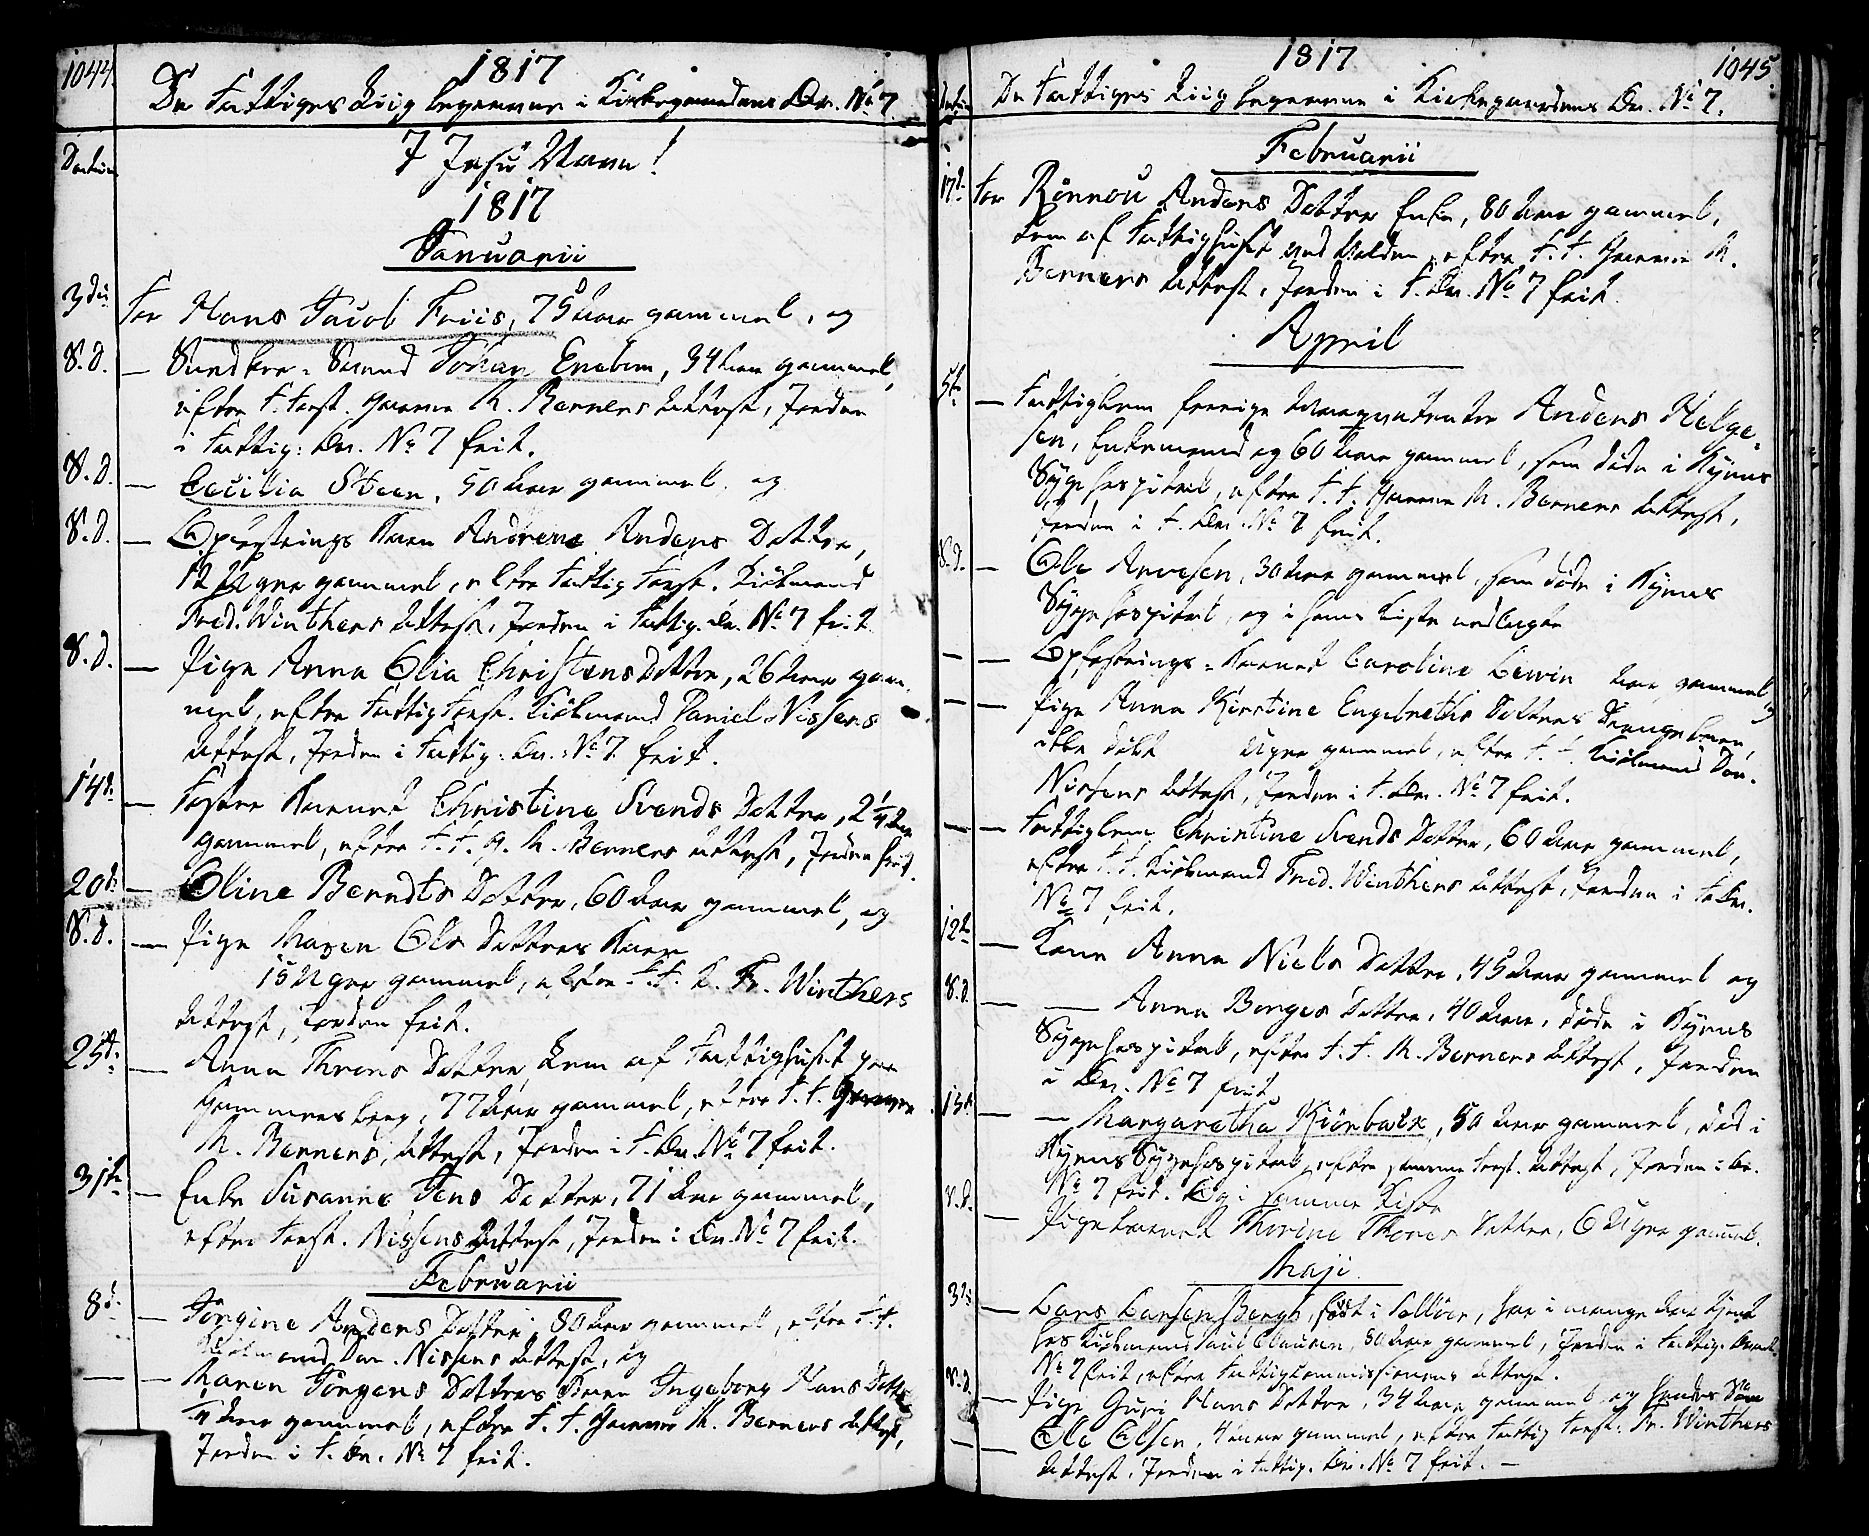 1044
1817
De Fattiges Liig begravne i Kirkegaardens Qu. No 7.
Datum
I Jesu Navn!
1817
Januarii
3die For Hans Jacob Friis, 75 Aar gammel, og
S.D. — Johan Eneben, 34 Aar gammel,
efter F. Forst. Garver M. Berners Attest, Jorden
i Fattig: Qu. No 7 frit.
S.D. — Cecilia Steen, 50 Aar gammel, og
S.D. — Opfostrings Barn Andrene Anders Datter,
12 Uger gammel, efter Fattig Forst. Kiöbmand
Fred. Winthers Attest, Jorden i Fattig. Qu. No 7 frit.
S.D. — Pige Anna Olia Christens Datter, 26 Aar gam-
mel, efter Fattig Forst. Kiöbmand Daniel Nissens
Attest, Jorden i Fattig: Qu. No 7 frit.
14de — Foster Barnet Christine Svends Datter, 2 1/4 Aar
gammel, efter F. F. G. M. Berners Attest, Jorden frit.
20de — Oline Berndts Datter, 60 Aar gammel, og
S.D. — Pige Maren Ols Datters Barn
15 Uger gammel, efter F.F. K. Fr. Winthers
Attest, Jorden frit.
25de — Anna Throns Datter, Lem af Fattighuset paa
Hammersborg, 77 Aar gammel, efter F.F. Garver
M. Berners, Attest, Jorden i F. Qu. No 7 frit.
31te — Enke Susanne Jens Datter, 71 Aar gammel,
efter Forst. Nissens Attest, Jorden i Qu. No 7 frit.
Februarii
8de — Jörgine Anders Datter, 80 Aar gammel, efter F.F.
Kiöbmand Dan. Nissens Attest, og
— — Maren Jörgens Datters Barn Ingeborg Hans Datter
1/4 Aar gammel, efter F. F. Garver M. Berners Attest,
Jorden i F. Qu. No 7 frit.
1817
1045
Datum
De Fattiges Liig begravne i Kirkegaardens Qu. No 7.
Februarii
17de For Rönnou Anders Datter Enke, 80 Aar gammel,
Lem af Fattighuset ved Volden, efter F. F. Garver M.
Berners Attest, Jorden i F. Qu. No 7 frit.
April
5te — Fattiglem forrige Anders Helge-
sen, Enkemand og 60 Aar gammel, som döde i Byens
Sygehospital, efter F. F. Garver M. Berners Attest,
Jorden i F. Qu. No 7 frit.
S.D. — Ole Arvesen, 30 Aar gammel, som döde i Byens
Sygehospital, og i hans Kiste nedlagte
— — Opfostrings-Barnet Caroline Lewin Aar gammel
— — Pige Anna Kirstine Engebreths Datters Drengebarn,
ikke döbt Uger gammel, efter F. F. Kiöbmand Dan.
Nissens Attest, Jorden i F. Qu. No 7 frit.
— — Fattiglem Christine Svends Datter, 60 Aar gammel,
efter F. F. Kiöbmand Fred. Winthers Attest, Jorden i F. Qu.
No 7 frit.
12te — Kone Anne Niels Datter, 45 Aar gammel og
S.D. — — Anna Borges Datter, 40 Aar, döde i Byens
Sygehospital, efter F. F. M. Berners Attest, Jorden
i Qu. No 7 frit.
15de — — Margaretha Kiörboux, 50 Aar gammel, död i
Byens Sygehospital, efter samme Forst. Attest, Jorden i Qu.
No 7 frit. Og i samme Kiste
S.D. — Pigebarnet Thorine Thores Datter, 6 Uger gammel.
Maji
3die — Lars Larsen Bergh, föd i Sollöer, har i mange Aar tjent
hos Kiöbmand Paul Clausen, 80 Aar gammel, Jorden i Fattig. Quart.
No 7 frit, efter Fattigkommissionens Attest.
S.D. — Pige Guri Hans Datter, 34 Aar gammel og hendes Sön
— — Ole Olsen, 4 Aar gammel, efter Fattig Forst. Fr. Winthers
Attest, Jorden i Fattig. Qu. No 7 frit. —